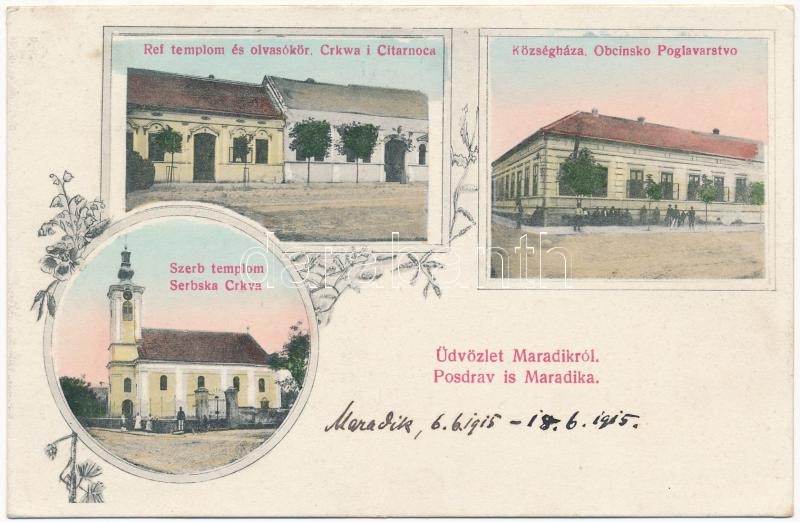 Ref templom és olvasókör. Crkwa i Citarnoca
Községháza. Obcinsko Poglavarstvo
Szerb templom
Serbska Crkva
darabanth
Üdvözlet Maradikról.
Posdrav is Maradika.
Maradik, 6.6.1915 – 18.6.1915.